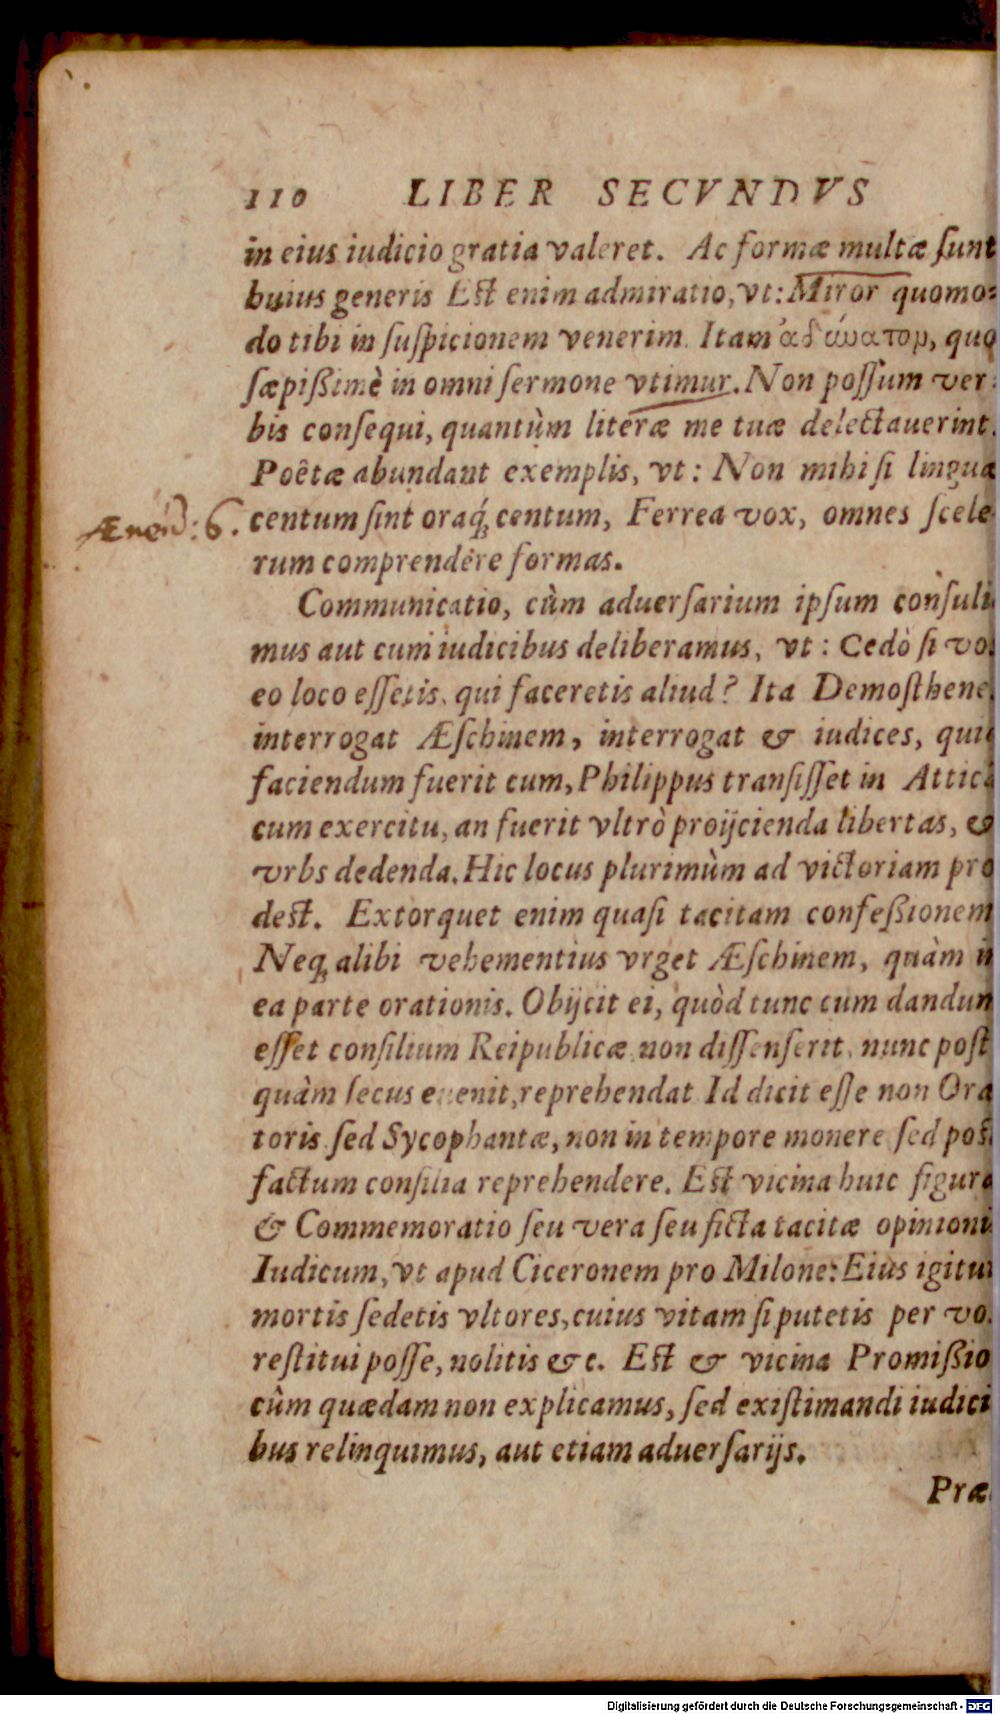 110 LIBER SECVNDVS
in eius iudicio gratia valeret. Ac formæ multæ ſunt
huius generis Eſt enim admiratio, vt: Miror quomo=
do tibi in ſuſpicionem venerim. Item ἀδύνατον, quo
ſæpißimè in omni ſermone vtimur. Non poſſum ver=
bis conſequi, quantùm literæ me tuæ delectauerint.
Poêtæ abundant exemplis, vt: Non mihi ſi linguæ
Æneid: 6.
centum ſint oraq́ꝫ centum, Ferrea vox, omnes ſcele
rum comprendere formas.
Communicatio, cùm aduerſarium ipſum conſuli
mus aut cum iudicibus deliberamus, vt: Cedò ſi vos
eo loco eſſetis, qui faceretis aliud? Ita Demoſthene
interrogat Æſchinem, interrogat & iudices, quid
faciendum fuerit cum, Philippus tranſiſſet in Atticā
cum exercitu, an fuerit vltrò proijcienda libertas, &
vrbs dedenda. Hic locus plurimùm ad victoriam pro
deſt. Extorquet enim quaſi tacitam confeßionem
Neqꝫ alibi vehementius vrget Æſchinem, quàm in
ea parte orationis. Obijcit ei, quòd tunc cum dandum
eſſet conſilium Reipublicæ non diſſenſerit, nunc poſt
quàm ſecus euenit, reprehendat Id dicit eſſe non Ora
toris ſed Sycophantæ, non in tempore monere ſed poſt
factum conſilia reprehendere. Eſt vicina huic figura
& Commemoratio ſeu vera ſeu ficta tacitæ opinioni
Iudicum, vt apud Ciceronem pro Milone: Eius igitur
mortis ſedetis vltores, cuius vitam ſi putetis per vo
reſtitui poſſe, nolitis &c. Eſt & vicina Promißio
cûm quædam non explicamus, ſed exiſtimandi iudici
bus relinquimus, aut etiam aduerſarijs.
Præ
Digitalisierung gefördert durch die Deutsche Forschungsgemeinschaft - DFG